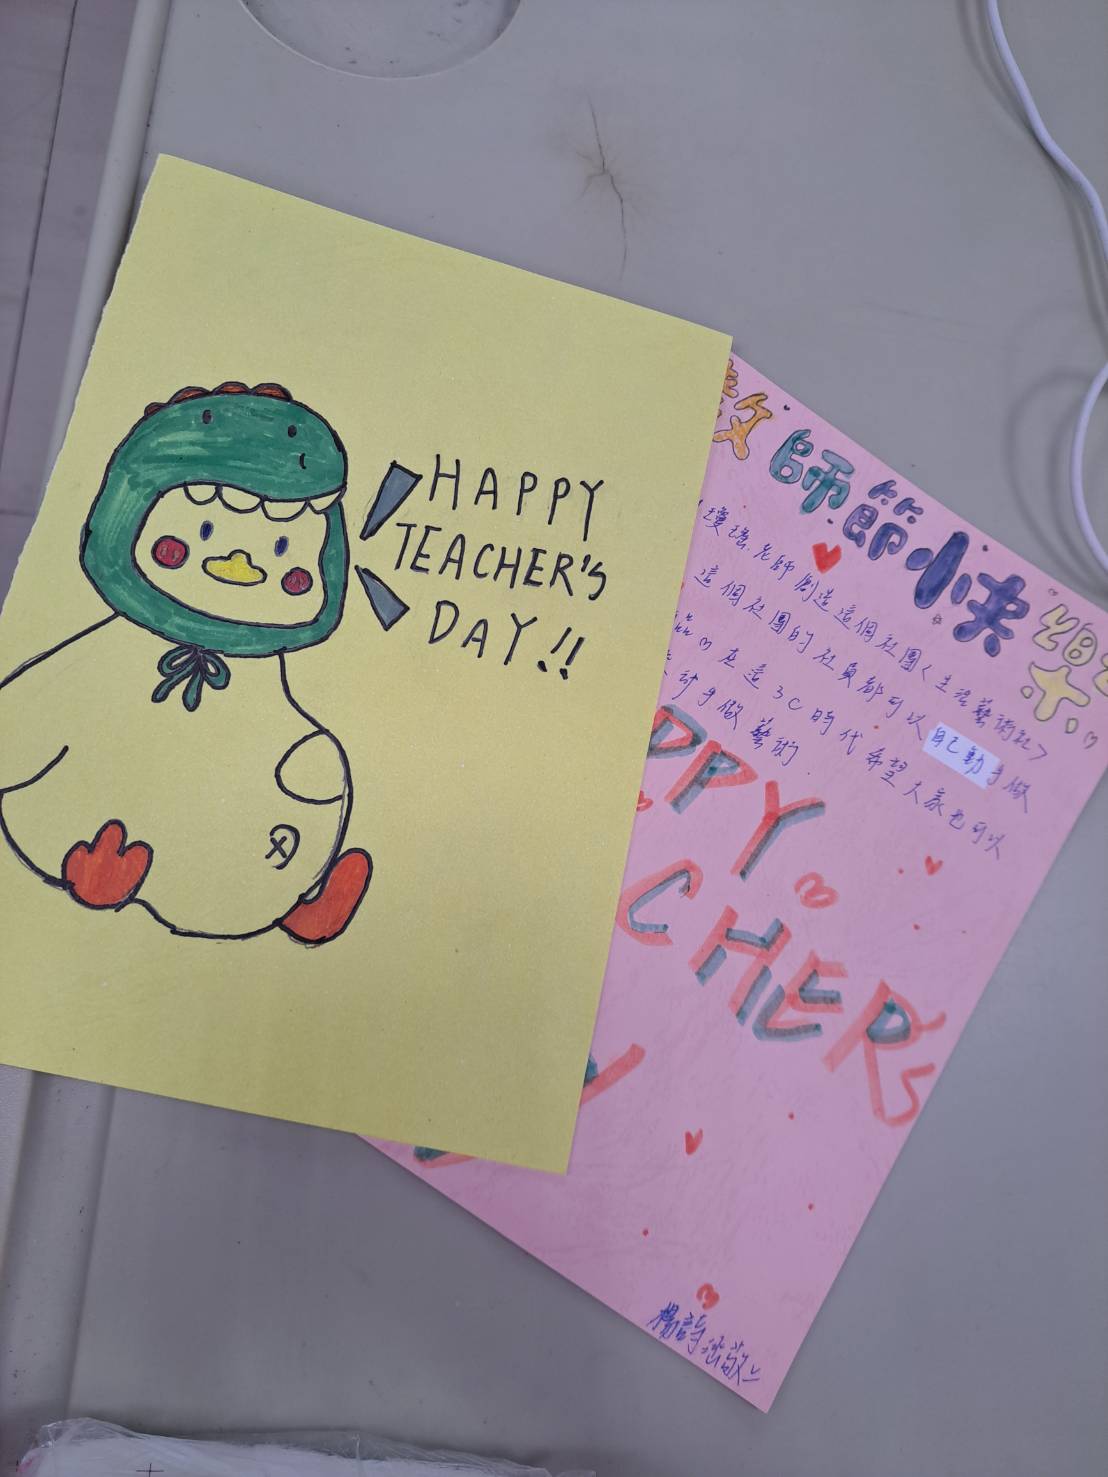 HAPPY
TEACHER'S
DAY!!
教師節快樂
老師創造這個社團<生活藝術社>
這個社團的社員都可以自己動手做
在這3C時代希望大家也可以
動手做藝術
PPY
CHER'S
楊詩
敬上